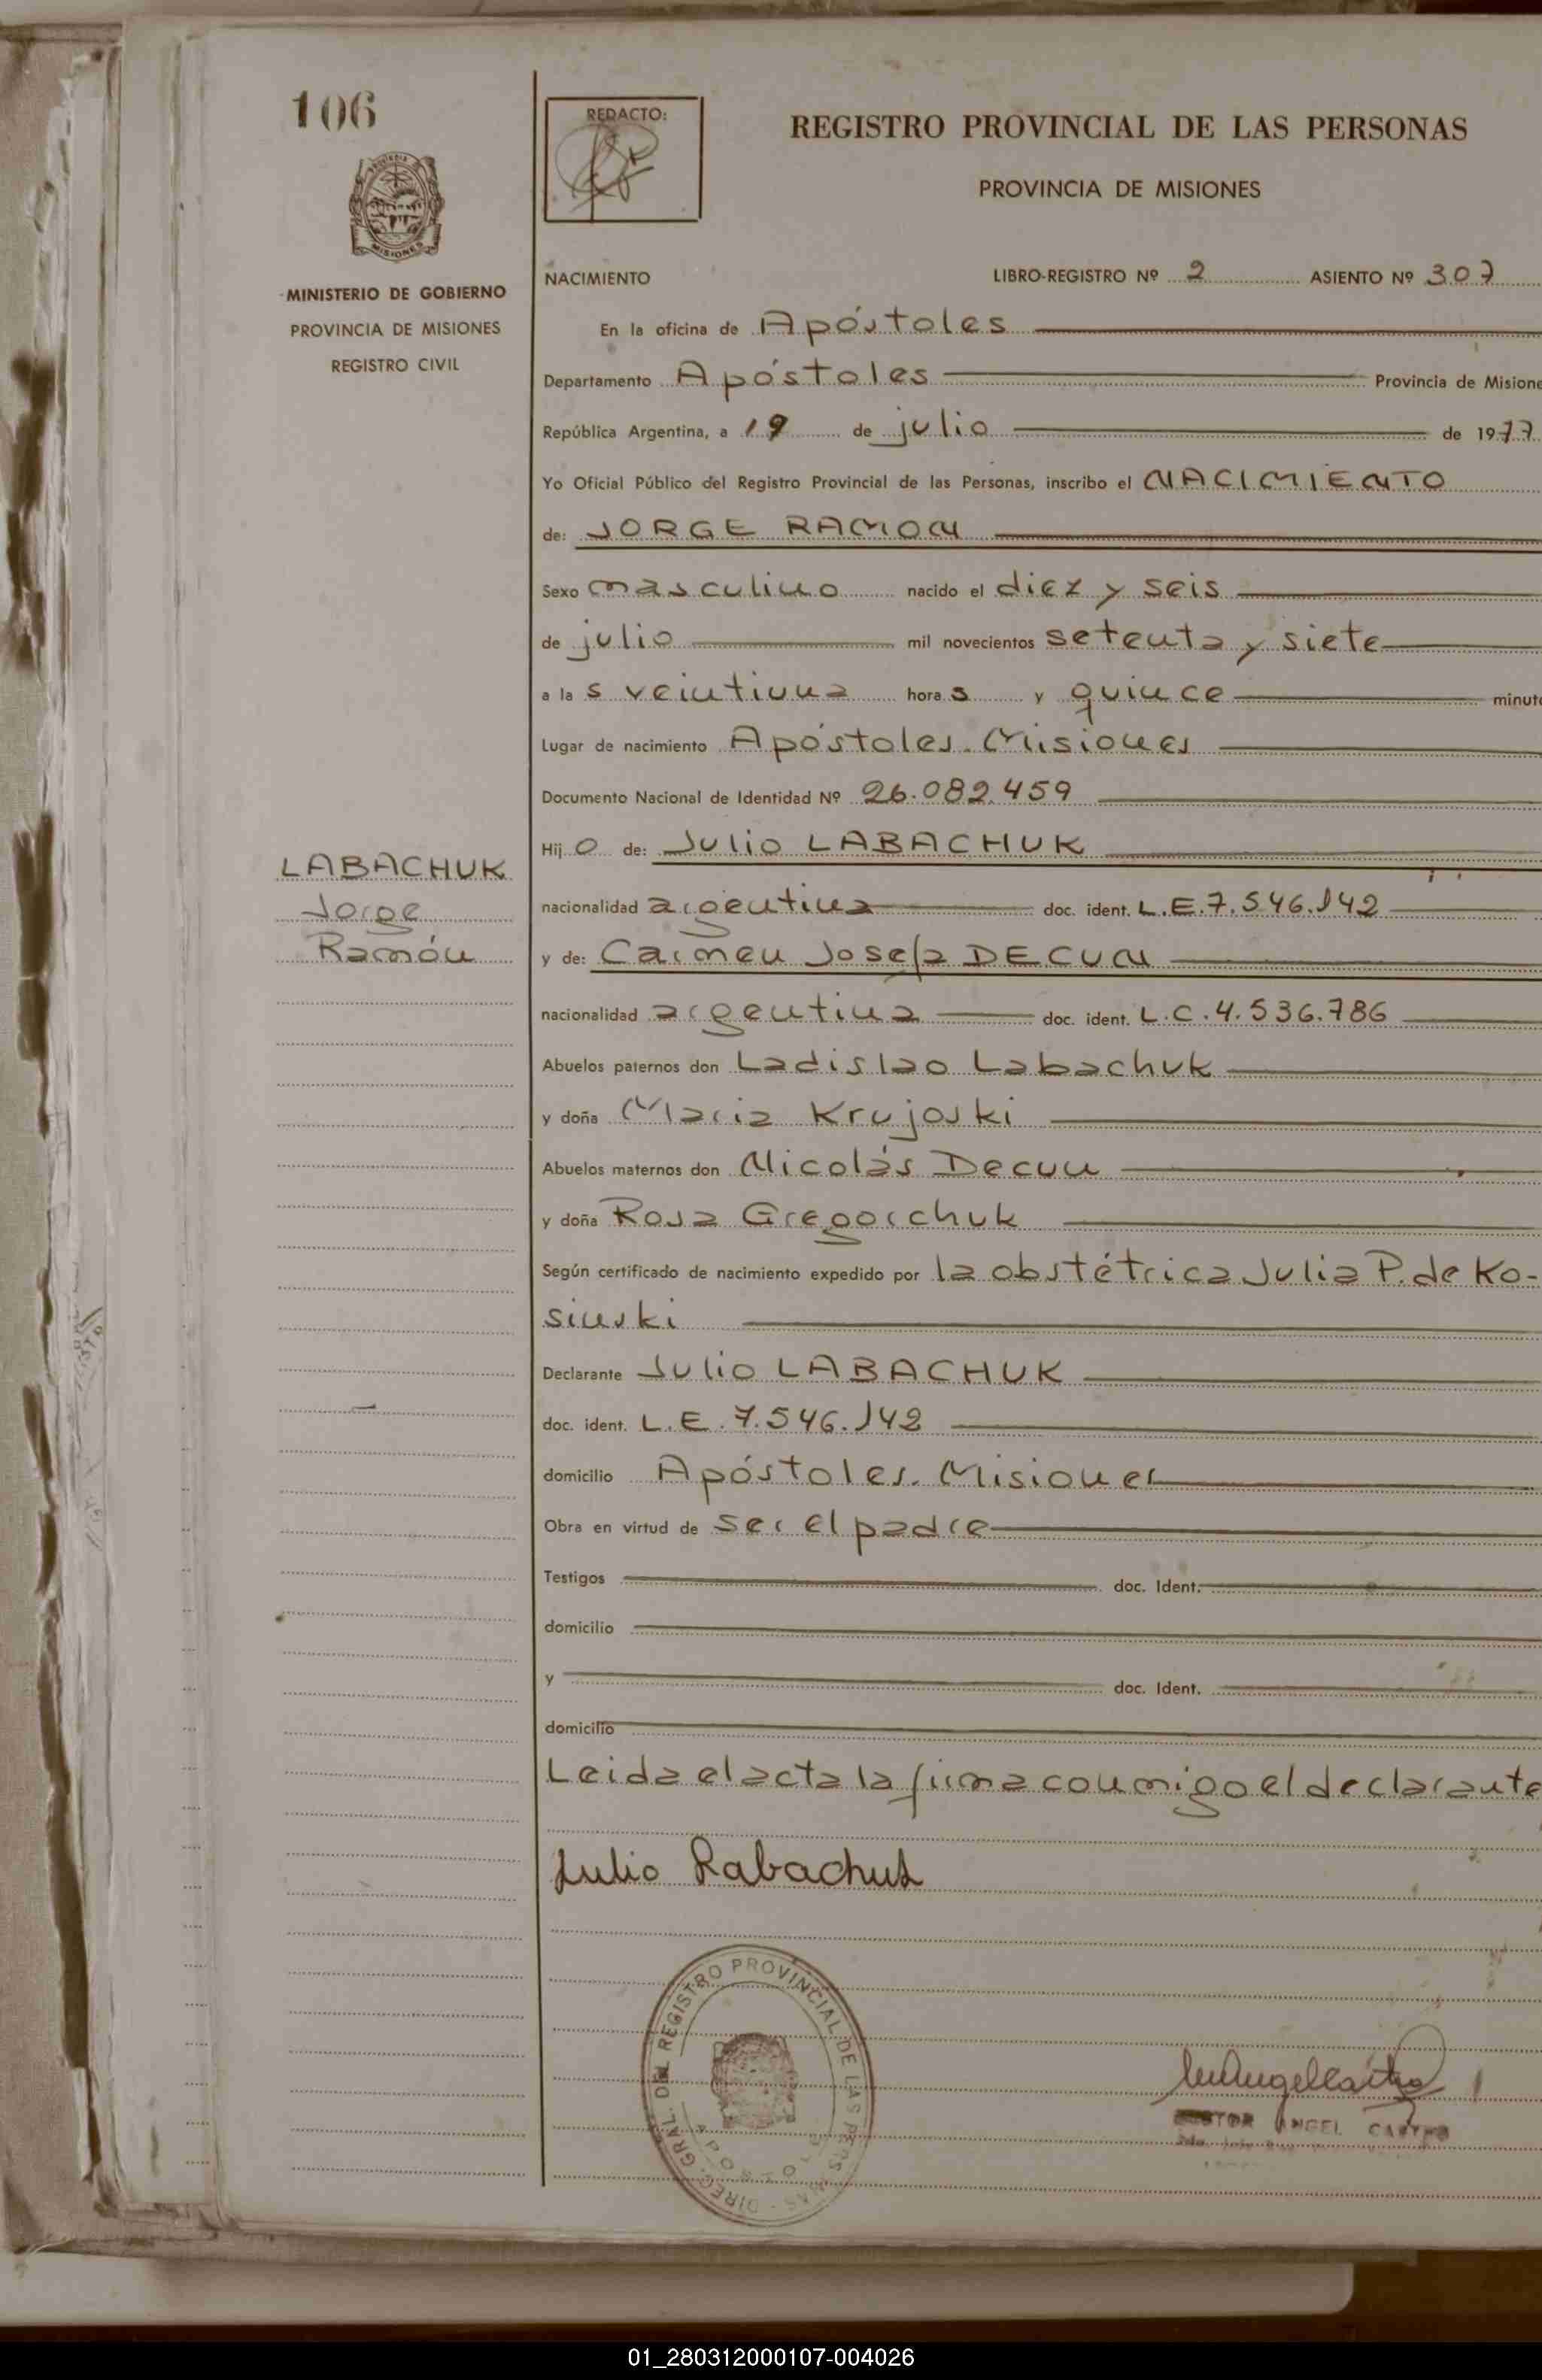 106
REDACTO:
REGISTRO PROVINCIAL DE LAS PERSONAS
PROVINCIA DE MISIONES
MISIONES
MINISTERIO DE GOBIERNO
PROVINCIA DE MISIONES
REGISTRO CIVIL
NACIMIENTO LIBRO-REGISTRO Nº 2 ASIENTO Nº 307
En la oficina de Apóstoles
Departamento Apóstoles Provincia de Misione
República Argentina, a 19 de julio de 1977
Yo Oficial Público del Registro Provincial de las Personas, inscribo el NACIMIENTO
de: JORGE RAMON
Sexo masculino nacido el diez y seis
de julio mil novecientos setenta y siete
a las veintiuna horas y quince minut
Lugar de nacimiento Apóstoles. Misiones
Documento Nacional de Identidad Nº 26.082.459
Hijo de: Julio LABACHUK
LABACHUK
Jorge
Ramón
nacionalidad argentina doc. ident. L.E.7.546.142
y de: Carmen Josefa DECUN
nacionalidad argentina doc. ident. L.C.4.536.786
Abuelos paternos don Ladislao Labachuk
y doña Maria Krujoski
Abuelos maternos don Nicolás Decun
y doña Rosa Gregorchuk
Según certificado de nacimiento expedido por la obstétrica Julia P. de Ko-
sinski
Declarante Julio LABACHUK
doc. ident. L.E.7.546.142
domicilio Apóstoles. Misiones
Obra en virtud de ser el padre
Testigos doc. Ident.
domicilio
y doc. Ident.
domicilio
Leida el acta la firma conmigo el declarante
Julio Labachuk
DIREC. GRAL. DEL REGISTRO PROVINCIAL DE LAS PERSONAS
APOSTOLES
ANGEL CASTRO
01_280312000107-004026